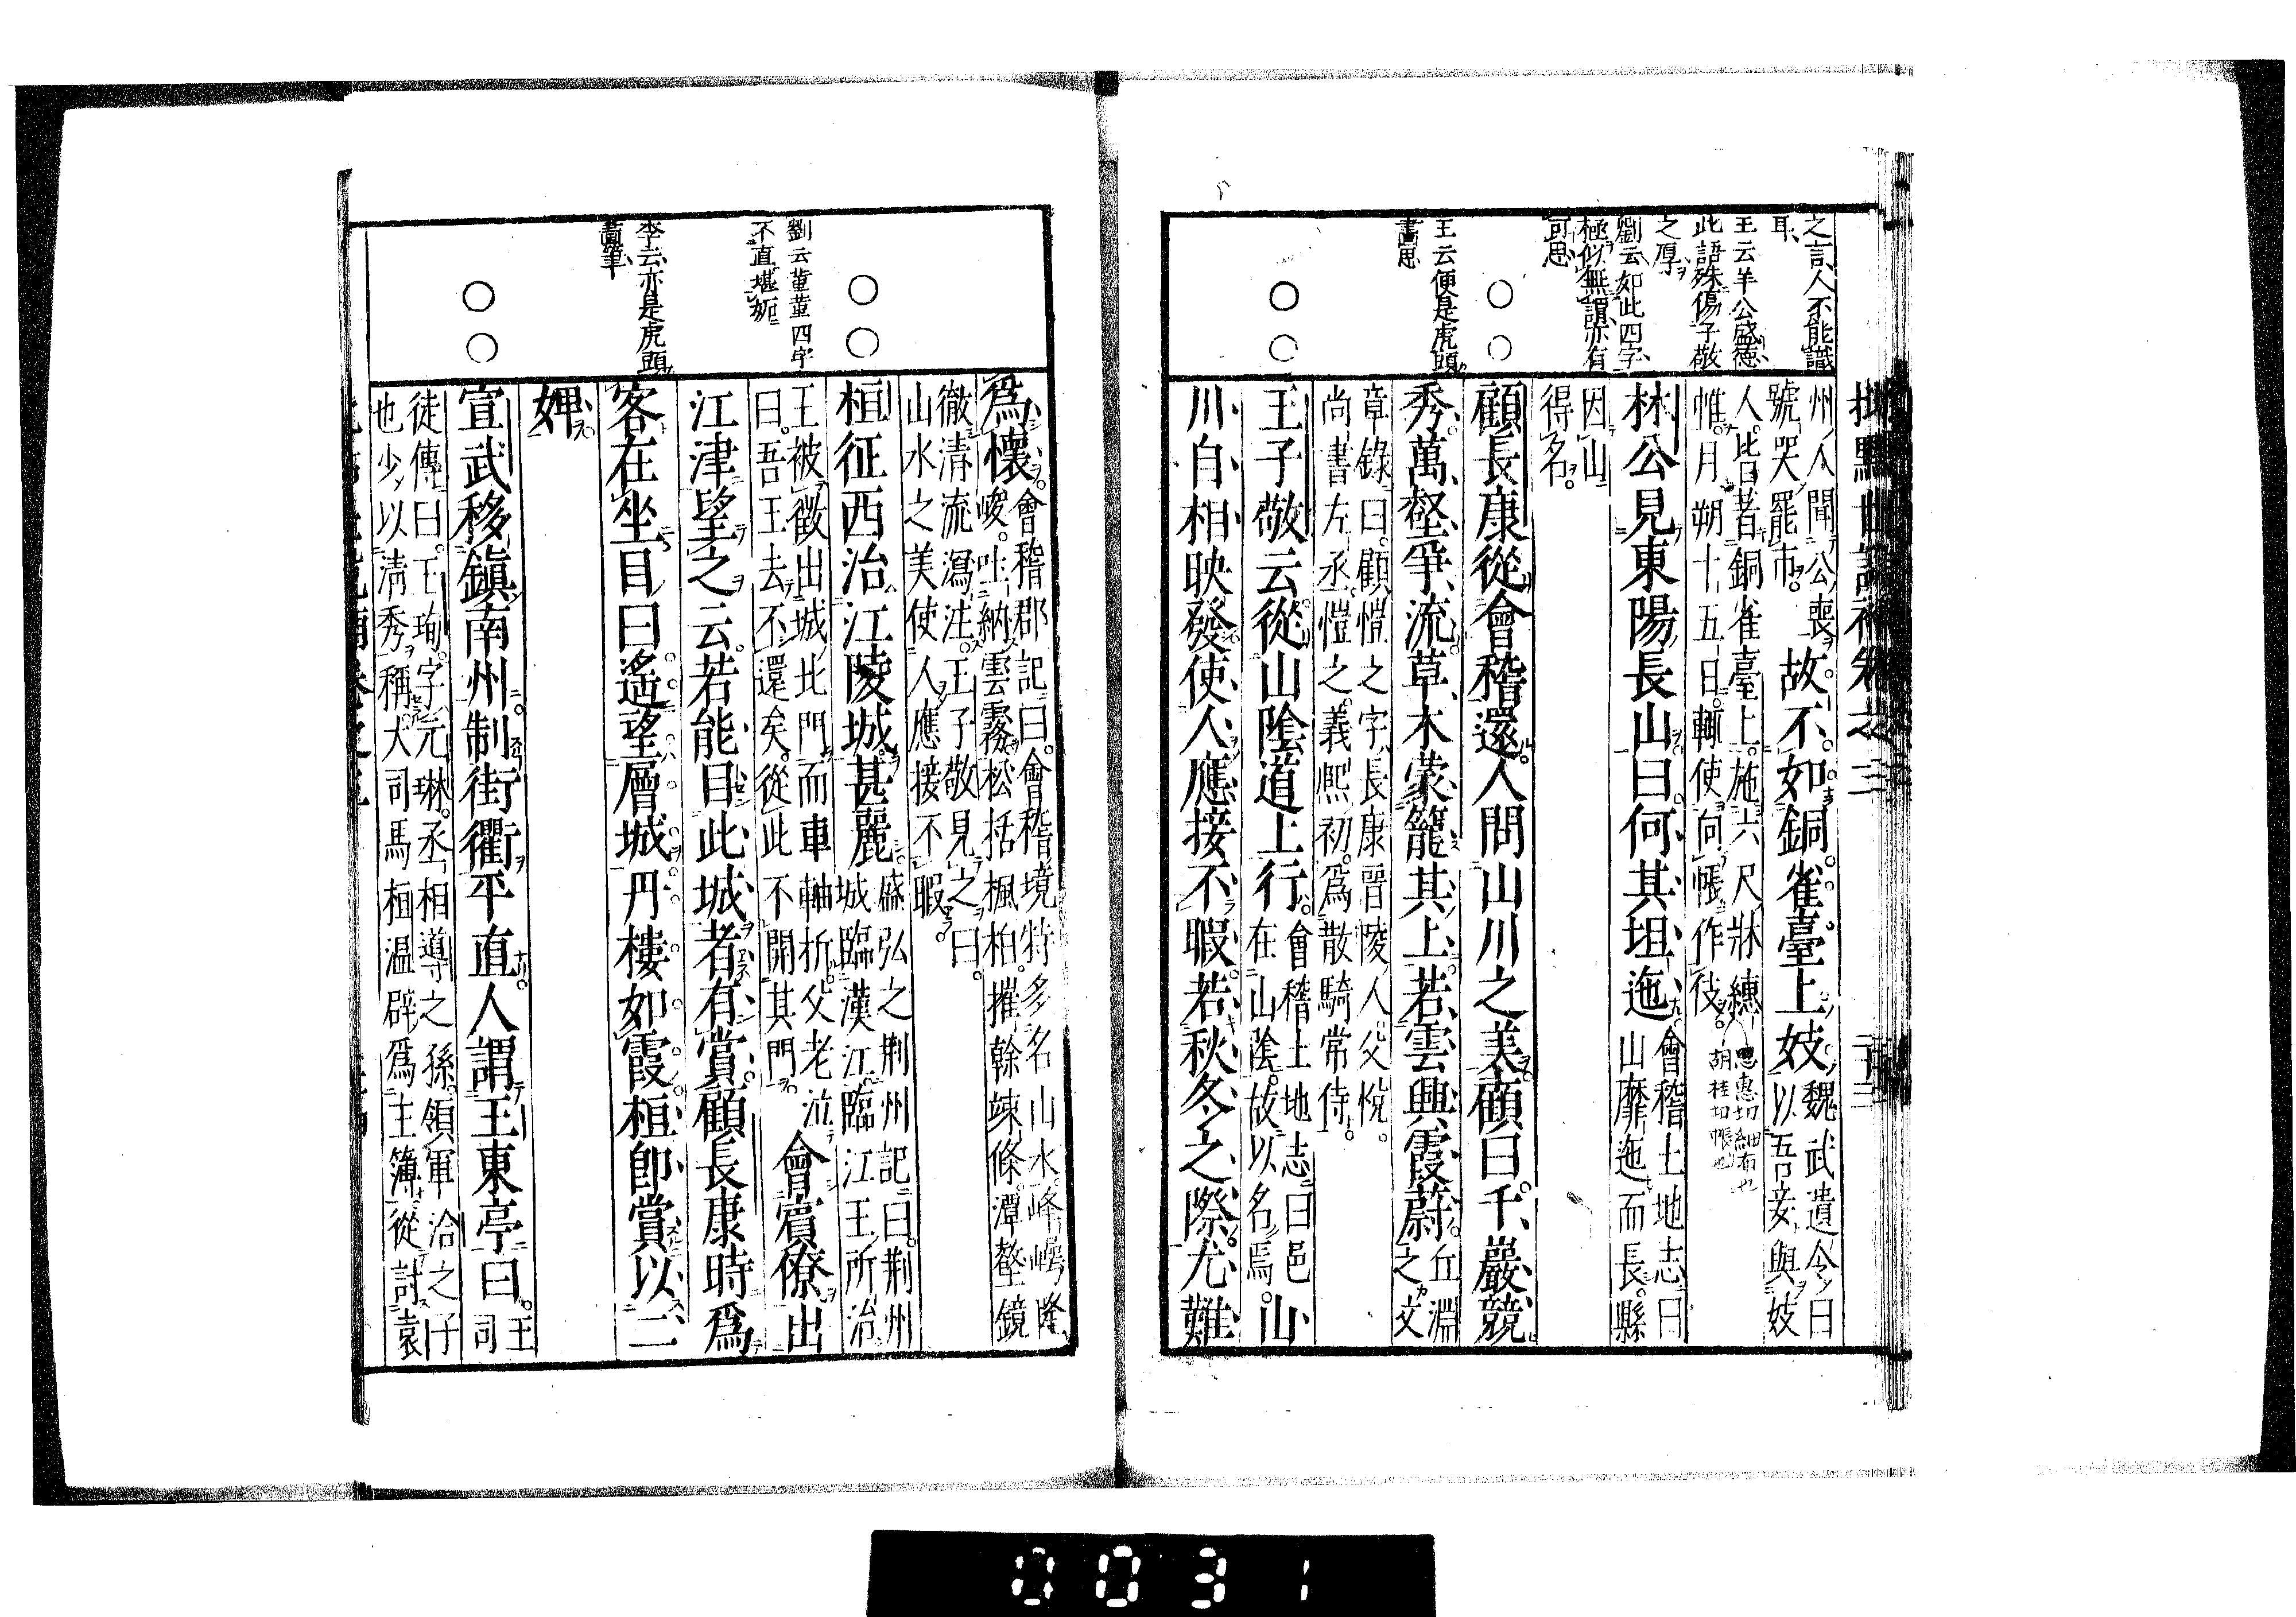 之言人不能識
耳
王云羊公盛德
此語殊傷子敬
之厚
劉云如此四字
極似無謂亦有
可思
王云便是虎頭
畫思
州人聞公喪
號哭罷市
故不如銅雀臺上妓
魏武遺令曰
以吾妾與妓
人皆著銅雀臺上施六尺牀繐
帷月朔十五日輒使向帳作伎
思惠切細布也
胡桂切帳也
林公見東陽長山曰何其坦迤
會稽土地志曰
山靡迤而長縣
因山
得名
顧長康從會稽還人問山川之美顧曰千巖競
秀萬壑爭流草木蒙籠其上若雲興霞蔚
丘淵
之文
章錄曰顧愷之字長康晉陵人父悅
尚書左丞愷之義熙初爲散騎常侍
王子敬云從山陰道上行
會稽土地志曰邑
在山陰故以名焉
山
川自相映發使人應接不暇若秋冬之際尤難
劉云董董四字
不直堪
李云亦是虎頭
畫筆
爲懷
會稽郡記曰會稽境特多名山水峰崿隆
峻吐納雲霧松栝楓柏擢幹竦條潭壑鏡
徹清流瀉注王子敬見之曰
山水之美使人應接不暇
桓征西治江陵城甚麗
盛弘之荆州記曰荆州
城臨漢江臨江王所治
王被徵出城北門而車軸折父老泣
曰吾王去不還矣從此不開其門
會賓僚出
江津望之云若能目此城者有賞顧長康時爲
客在坐目曰遙望層城丹樓如霞桓卽賞以二
婢
宣武移鎮南州制街衢平直人謂王東亭曰
王
司
徒傳曰王珣字元琳丞相導之孫領軍洽之子
也少以清秀稱大司馬桓温辟爲主簿從討袁
0031